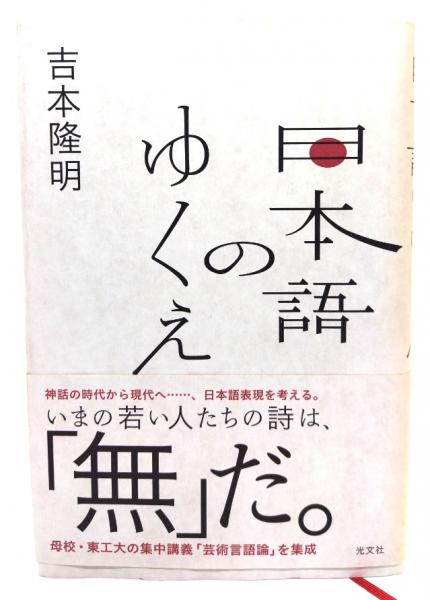 日本語
の
ゆくえ
吉本隆明
神話の時代から現代へ……、日本語表現を考える。
いまの若い人たちの詩は、
「無」だ。
母校・東工大の集中講義「芸術言語論」を集成
光文社